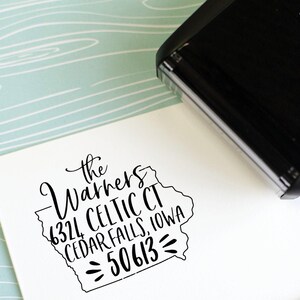 the
Warners
6324 CELTIC CT
CEDAR FALLS, IOWA
50613